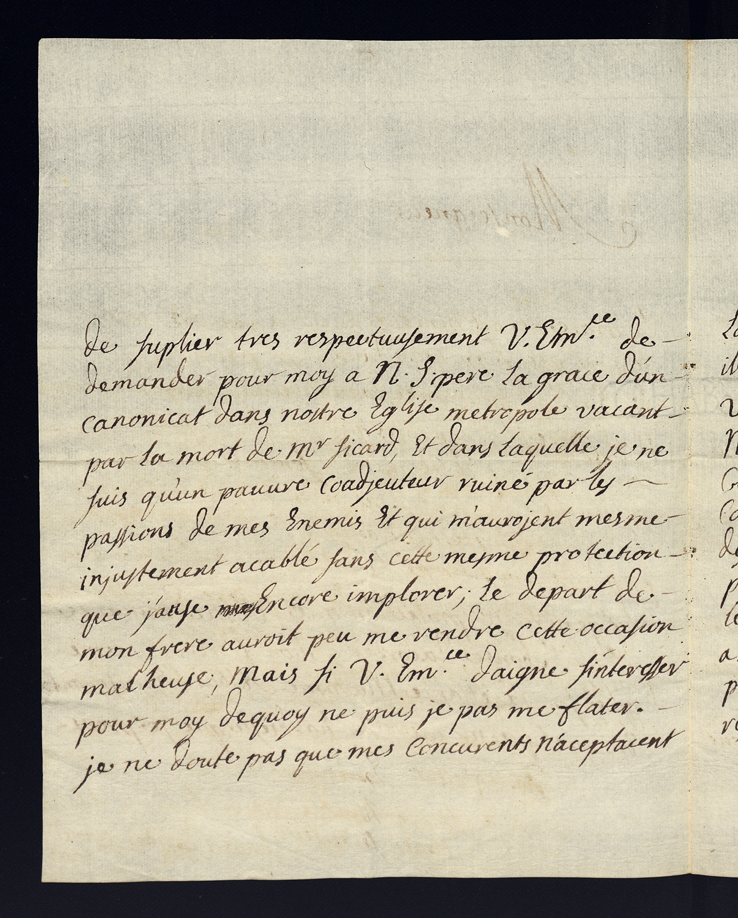 de suplier tres respectueusement V. Em.ce de
demander pour moy a N. S. pere la grace d'un
canonicat dans nostre Eglise metropole vacant
par la mort de Mr sicard, Et dans laquelle je ne
suis qu'un pauure Coadjeuteur ruiné par les
passions de mes Enemis Et qui m'aurojent mesme
injustement acablé sans cette mesme protection
que j'ause Encore implorer; le depart de
mon frere auroit peu me rendre cette occasion
malheuse, Mais si V. Em.ce daigne s'interesser
pour moy dequoy ne puis je pas me flater.
je ne doute pas que mes Concurents n'aceptacent